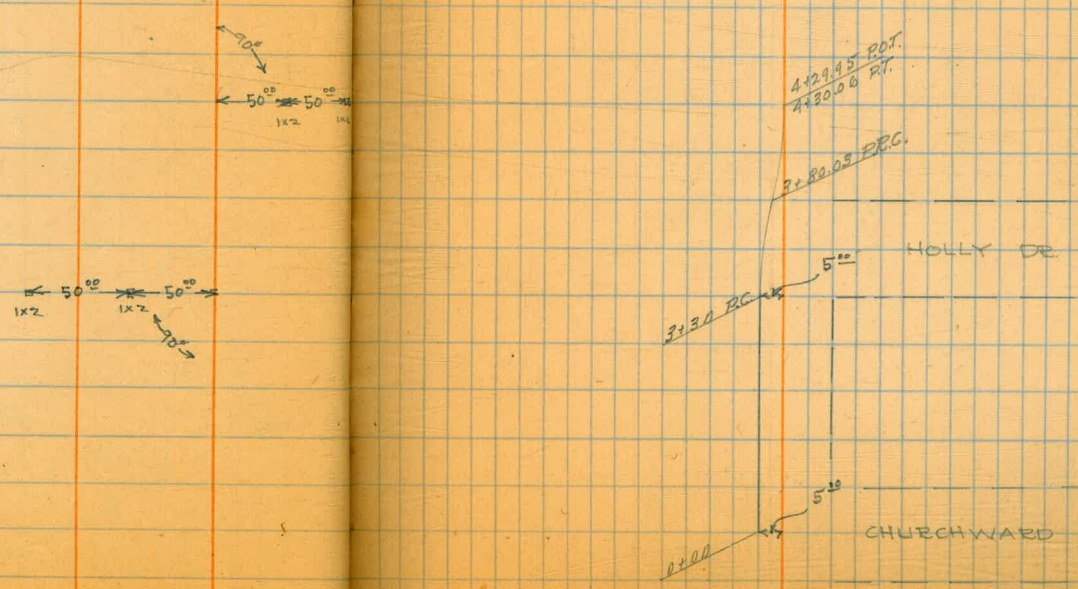 90°
50⁰⁰ 50⁰⁰
1x2 1x2
50⁰⁰ 50⁰⁰
1x2 1x2
90°
4+29.95 P.O.T.
4+30.06 P.T.
3+80.03 P.R.C.
HOLLY DR.
5⁰⁰
3+30 P.C.
5⁰⁰
CHURCHWARD
0+00